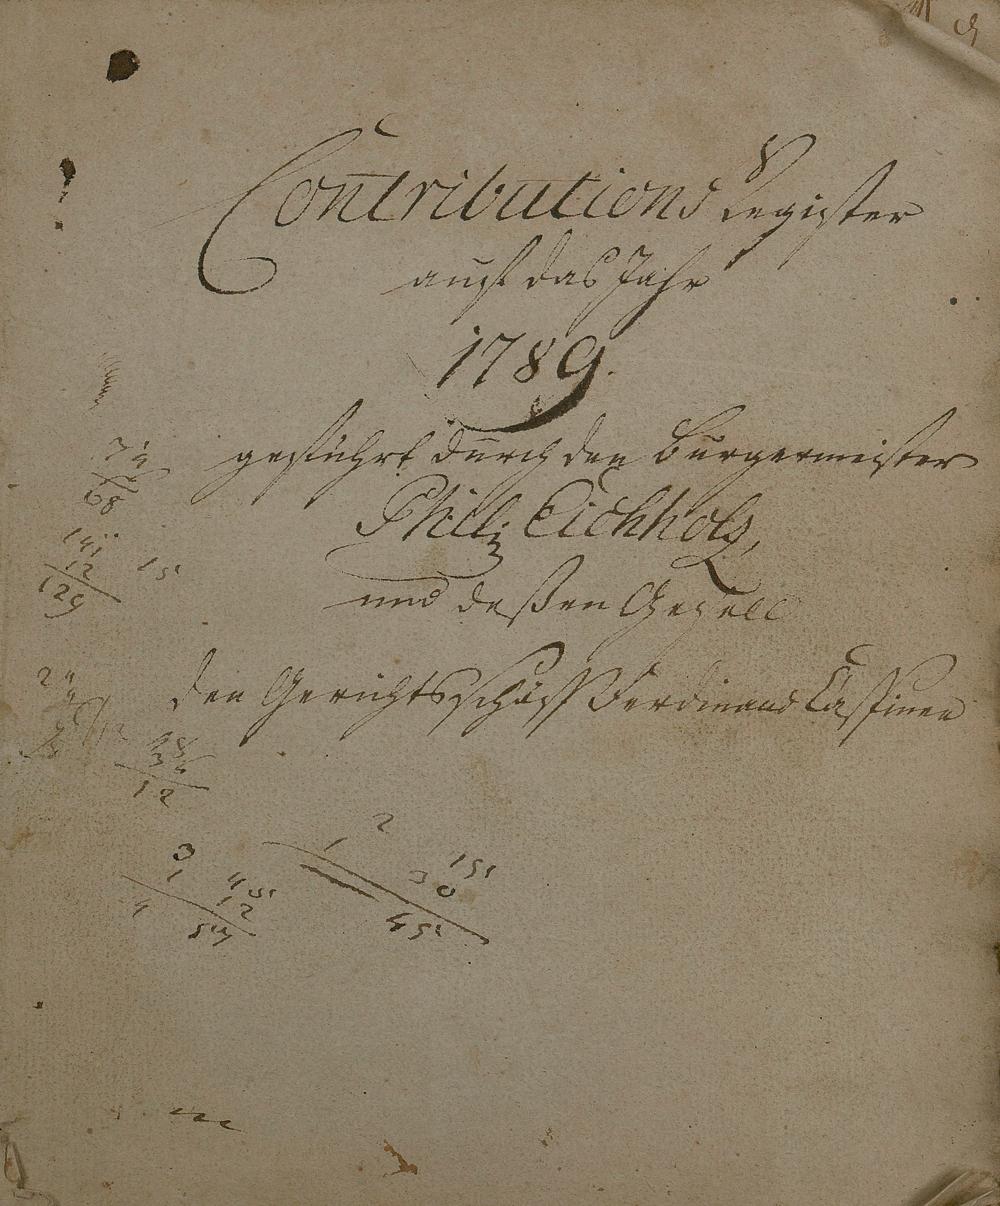 Contributions Register
auf das Jahr
1789.
geführt durch den Burgermeister
Philip Eichholz,
und deßen Gesell
den Gerichtsschöff Ferdinand
68
141 15
12
129
12
2
1 151
3 30
1 45
12
4 57 45